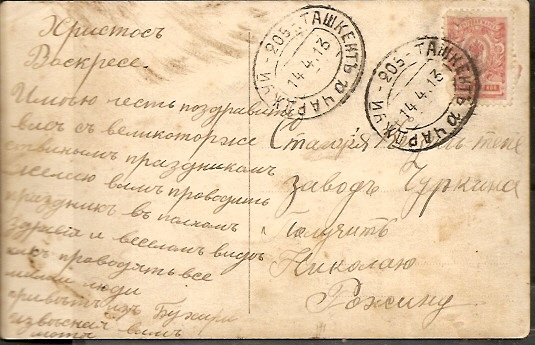 Христосъ
Воскресе.
Имѣю честь поздравить
васъ съ великоторже
ственнымъ праздникамъ
желаю вамъ проводить
праздникъ въ полномъ
здравiи и веселомъ видѣ
какъ проводять все
люди
изъ Бухары
вамъ
ТАШКЕНТЪ 205 ЧАРДЖУЙ
14.4.13
ТАШКЕНТЪ 205 ЧАРДЖУЙ
14.4.13
Старая
заводъ Чуркина
Получить
Николаю
Рожину